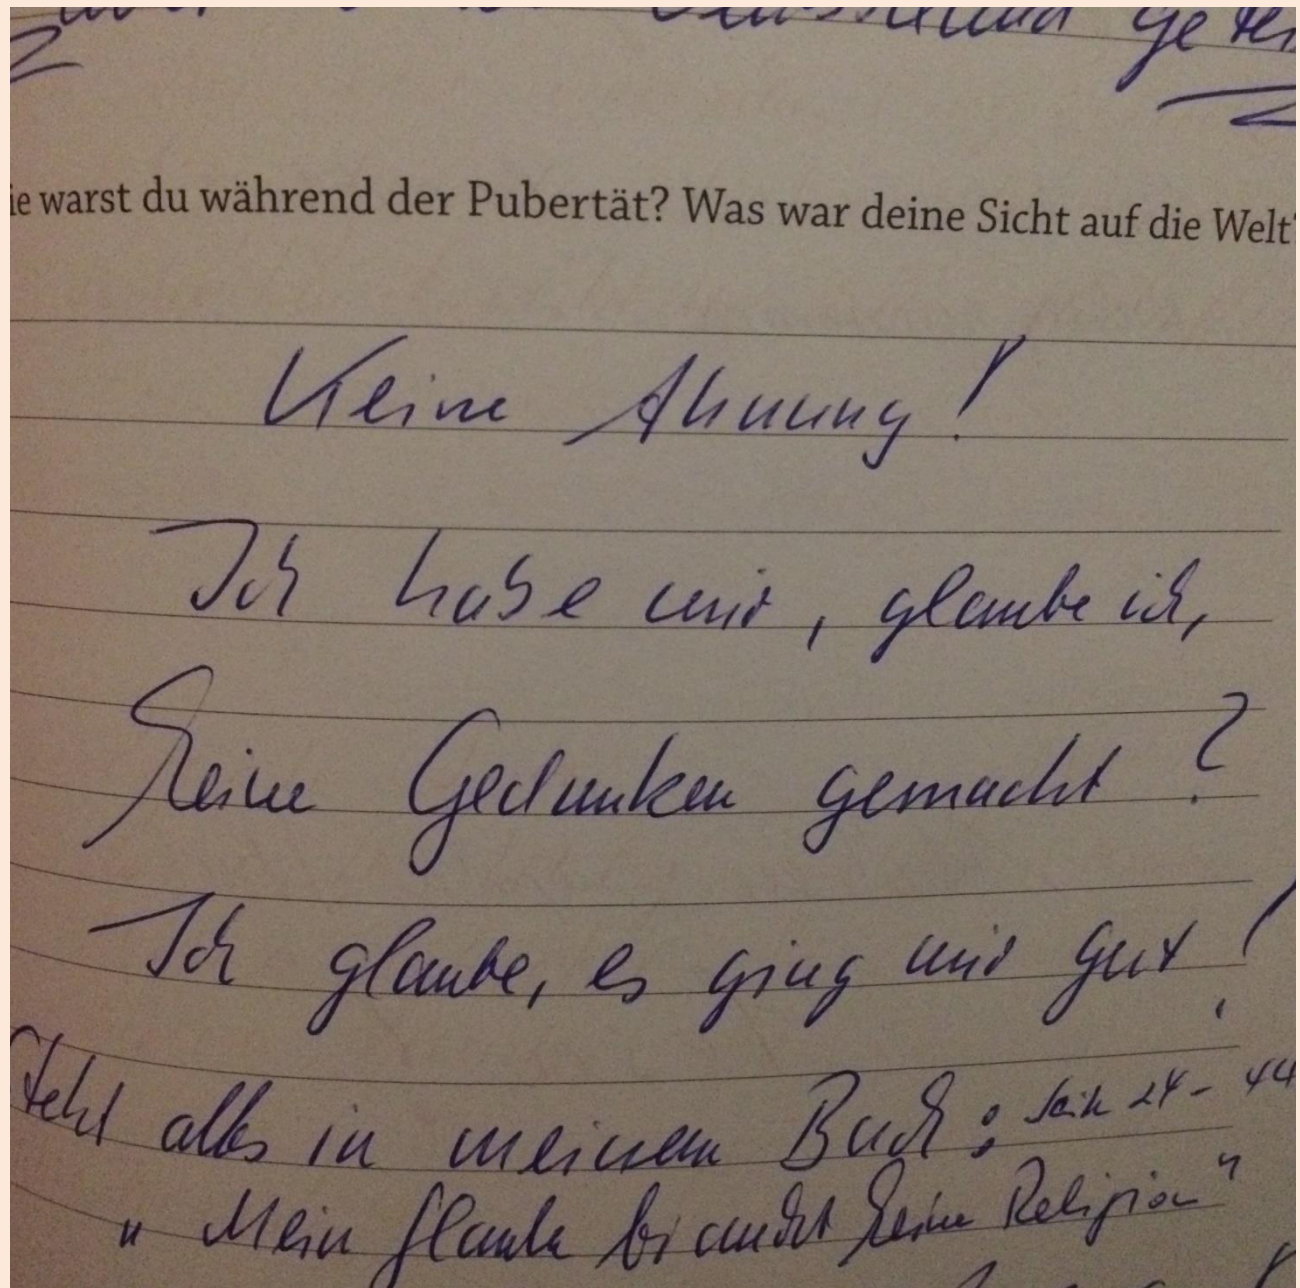 ie warst du während der Pubertät? Was war deine Sicht auf die Welt?
Keine Ahnung!
Ich habe mir, glaube ich,
keine Gedanken gemacht?
Ich glaube, es ging mir gut!
Steht alles in meinem Buch: Seite 24 - 44
"Mein Glaube braucht keine Religion"